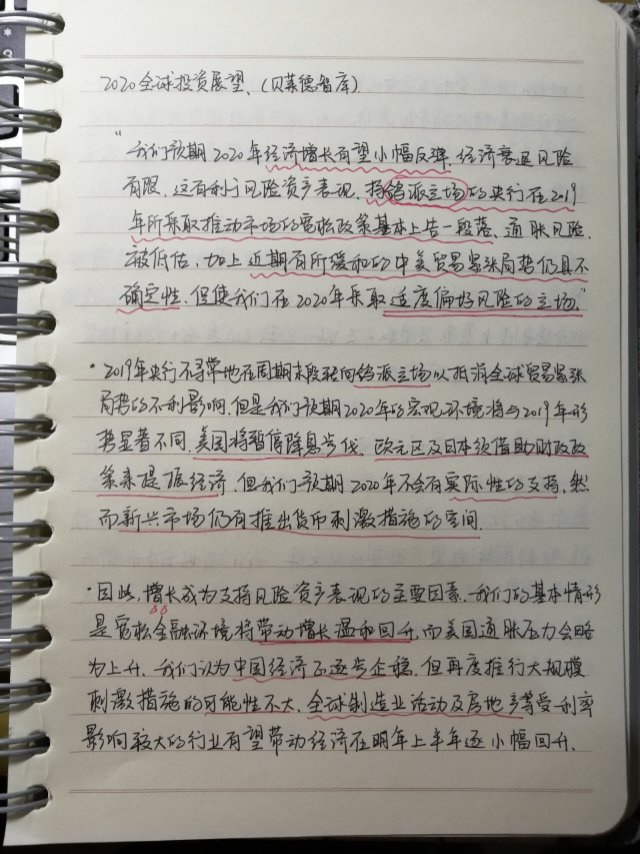 2020全球投资展望、(贝莱德智库)
"我们预期2020年经济增长有望小幅反弹,经济衰退风险
有限,这有利于风险资产表现,持鸽派立场的央行在2019
年所采取推动市场的宽松政策基本上告一段落、通胀风险
被低估,加上近期有所缓和的中美贸易紧张局势仍具不
确定性,但使我们在2020年采取适度偏好风险的立场."
·2019年央行不寻常地在周期末段转向鸽派立场以抵消全球贸易紧张
局势的不利影响,但是我们预期2020年的宏观环境将与2019年形
势显著不同,美国将暂停降息步伐、欧元区及日本须借助财政政
策来提振经济,但我们预期2020年不会有实际性的支持,然
而新兴市场仍有推出货币刺激措施的空间.
·因此,增长成为支持风险资产表现的主要因素,我们的基本情形
是宽松金融环境将带动增长温和回升,而美国通胀压力会略
为上升、我们认为中国经济正逐步企稳,但再度推行大规模
刺激措施的可能性不大,全球制造业活动及房地产等受利率
影响较大的行业有望带动经济在明年上半年逐小幅回升、